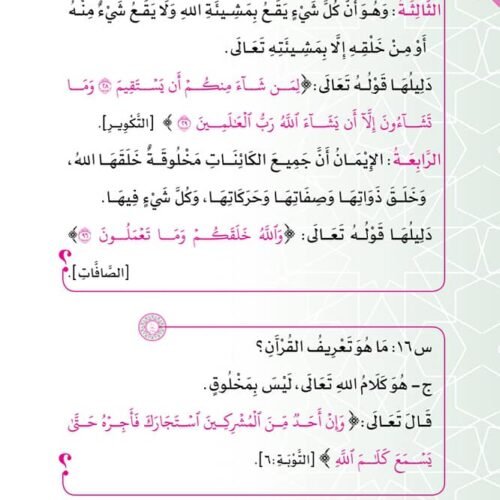 الثَّالِثَةُ: وَهُوَ أَنَّ كُلَّ شَيْءٍ يَقَعُ بِمَشِيئَةِ اللهِ وَلَا يَقَعُ شَيْءٌ مِنْهُ
أَوْ مِنْ خَلْقِهِ إِلَّا بِمَشِيئَتِهِ تَعَالَى.
دَلِيلُهَا قَوْلُهُ تَعَالَى: ﴿لِمَن شَآءَ مِنكُمْ أَن يَسْتَقِيمَ ٢٨ وَمَا
تَشَآءُونَ إِلَّآ أَن يَشَآءَ ٱللَّهُ رَبُّ ٱلْعَٰلَمِينَ ٢٩﴾ [التَّكْوِير].
الرَّابِعَةُ: الإِيْمَانُ أَنَّ جَمِيعَ الكَائِنَاتِ مَخْلُوقَةٌ خَلَقَهَا اللهُ،
وَخَلَقَ ذَوَاتِهَا وَصِفَاتِهَا وَحَرَكَاتِهَا، وَكُلَّ شَيْءٍ فِيهَا.
دَلِيلُهَا قَوْلُهُ تَعَالَى: ﴿وَٱللَّهُ خَلَقَكُمْ وَمَا تَعْمَلُونَ ٩٦﴾
[الصَّافَّات].
س١٦: مَا هُوَ تَعْرِيفُ القُرْآنِ؟
ج- هُوَ كَلَامُ اللهِ تَعَالَى، لَيْسَ بِمَخْلُوقٍ.
قَالَ تَعَالَى: ﴿وَإِنْ أَحَدٌ مِّنَ ٱلْمُشْرِكِينَ ٱسْتَجَارَكَ فَأَجِرْهُ حَتَّىٰ
يَسْمَعَ كَلَٰمَ ٱللَّهِ﴾ [التَّوْبَةِ:٦].